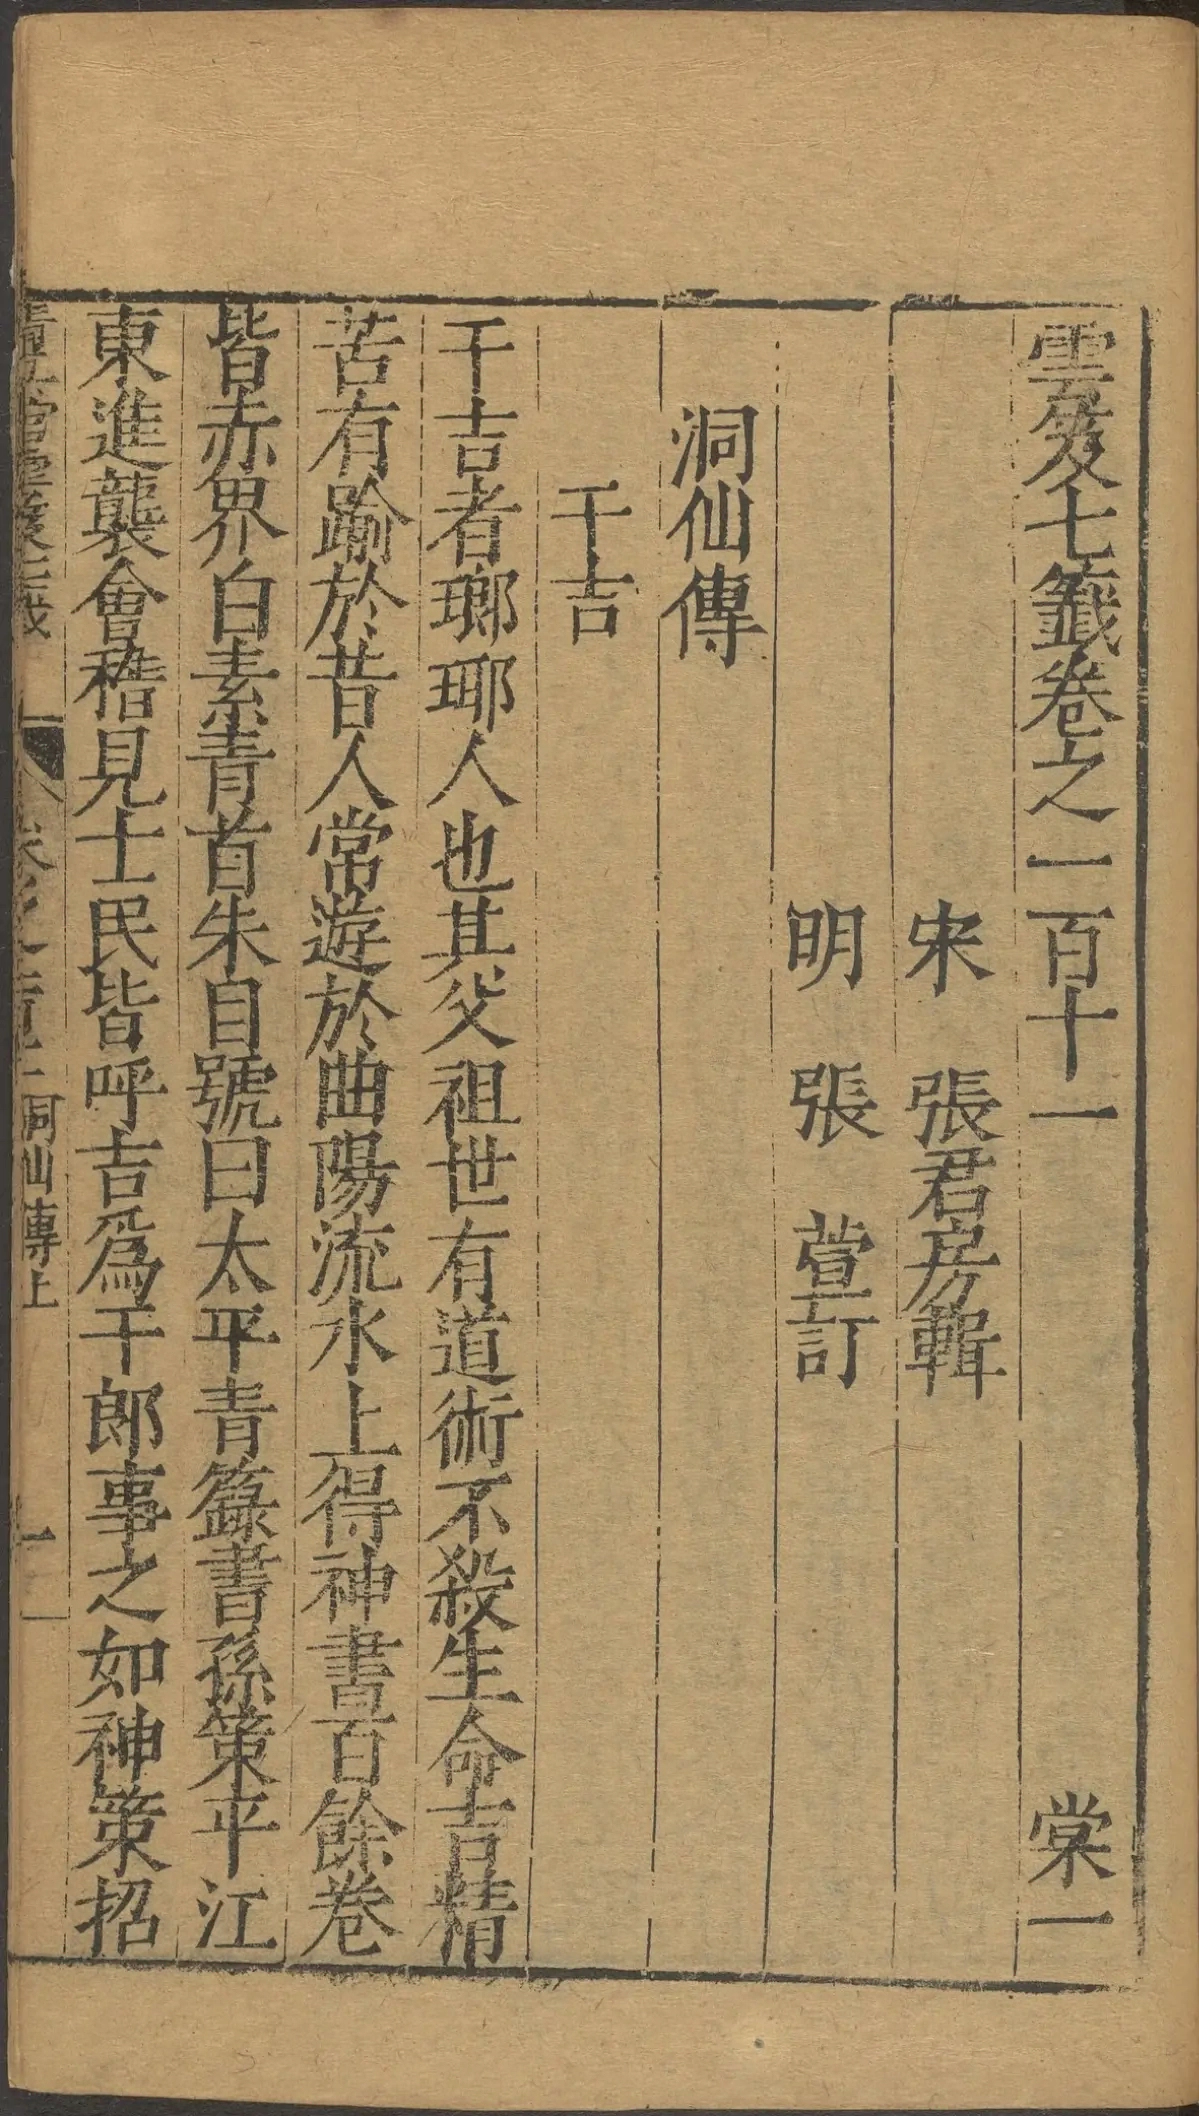 雲笈七籤卷之一百十一 棠一
宋 張君房輯
明 張 萱訂
洞仙傳
干吉
干吉者瑯琊人也其父祖世有道術不殺生命吉精
苦有踰於昔人常遊於曲陽流水上得神書百餘卷
皆赤界白素青首朱自號曰太平青籙書孫策平江
東進襲會稽見士民皆呼吉為干郎事之如神策招
洞仙傳上
一